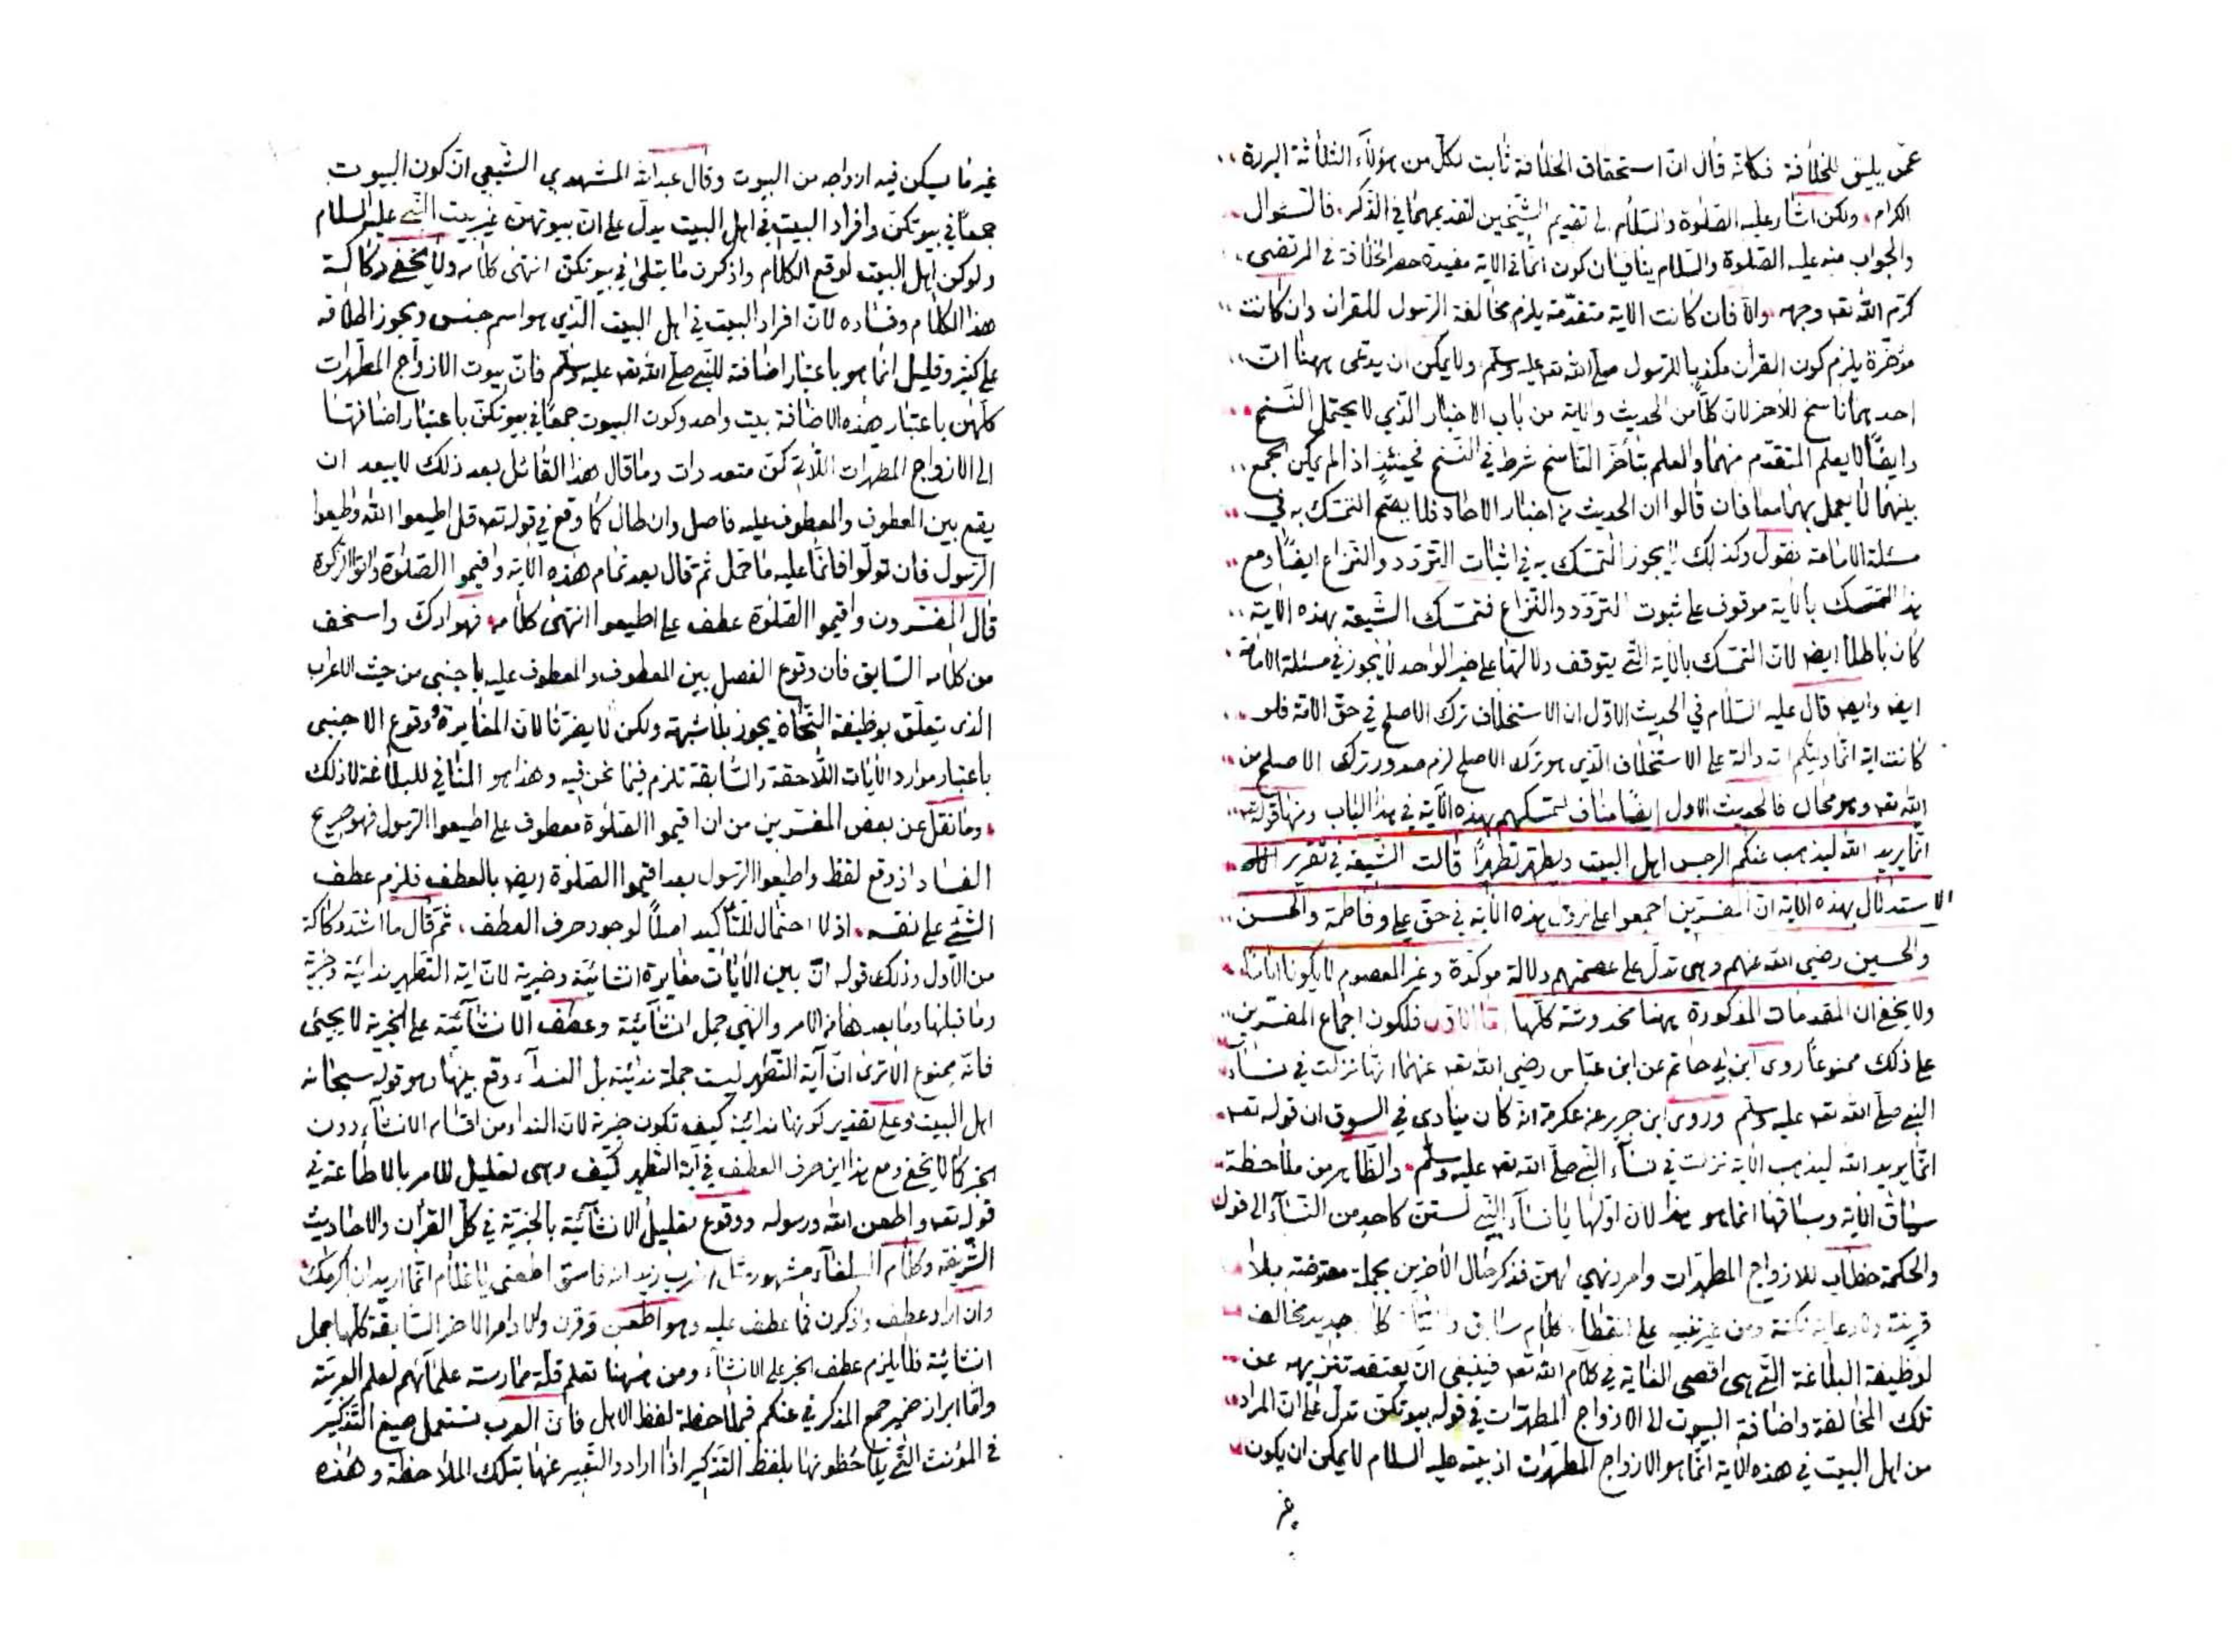 عمن يليق للخلافة فكانه قال ان استحقاق الخلافة ثابت لكل من هؤلاء الثلاثة البررة
الكرام ولكن اشار عليه الصلوة والسلام الى تقديم الشيخين لتقديمهما في الذكر فالسئوال
والجواب منه عليه الصلوة والسلام ينافيان كون انما في الاية مفيدة حصر الخلافة في المرتضى
كرم الله تعه وجهه والا فان كانت الاية متقدمة يلزم مخالفة الرسول للقران وان كانت
مؤخرة يلزم كون القران مكذبا للرسول صلى الله تعه عليه وسلم ولا يمكن ان يدعى ههنا ان
احدهما ناسخ للآخر لان كلا من الحديث والاية من باب الاخبار الذي لا يحتمل النسخ
وايضا لا يعلم المتقدم منهما والعلم بتأخر الناسخ شرط في النسخ فحينئذ اذا لم يمكن الجمع
بينهما لا يعمل بهما معا فان قالوا ان الحديث من اخبار الاحاد فلا يصح التمسك به في
مسئلة الامامة نقول وكذلك لا يجوز التمسك به في اثبات التردد والنزاع ايضا ومع
هذا التمسك بالاية موقوف على ثبوت التردد والنزاع فتمسك الشيعة بهذه الاية
كان باطلا ايضا لان التمسك بالاية التي يتوقف دلالتها على خبر الواحد لا يجوز في مسئلة الامامة
ايضا وايضا قال عليه السلام في الحديث الاول ان الاستخلاف ترك الاصلح في حق الامة فلو
كانت اية انما وليكم الله دالة على الاستخلاف الذي هو ترك الاصلح لزم صدور ترك الاصلح من
الله تعه وهو محال فالحديث الاول ايضا مناف لتمسكهم بهذه الاية في هذا الباب ومنها قوله تعه
انما يريد الله ليذهب عنكم الرجس اهل البيت ويطهركم تطهيرا قالت الشيعة في تقرير
الاستدلال بهذه الاية ان المفسرين اجمعوا على نزول هذه الاية في حق علي وفاطمة والحسن
والحسين رضي الله عنهم وهى تدل على عصمتهم دلالة مؤكدة وغير المعصوم لا يكون اماما
ولا يخفى ان المقدمات المذكورة ههنا مخدوشة كلها اما الاول فلكون اجماع المفسرين
على ذلك ممنوعا روى ابن ابي حاتم عن ابن عباس رضي الله تعه عنهما انها نزلت في نساء
النبي صلى الله تعه عليه وسلم وروى ابن جرير عن عكرمة انه كان ينادى في السوق ان قوله تعه
انما يريد الله ليذهب الاية نزلت في نساء النبي صلى الله تعه عليه وسلم والظاهر من ملاحظة
سياق الاية وسباقها انما هو هذا لان اولها يا نساء النبي لستن كاحد من النساء الى قوله
والحكمة خطاب للازواج المطهرات وامر ونهي لهن فذكر حال الآخرين بجملة معترضة بلا
قرينة ولا رعاية نكتة ومن غير تنبيه على انقطاع كلام سابق وافتتاح كلام جديد مخالف
لوظيفة البلاغة التي هى اقصى الغاية في كلام الله تعه فينبغى ان يعتقد تنزيهه عن
تلك المخالفة واضافة البيوت الى الازواج المطهرات في قوله بيوتكن تدل على ان المراد
من اهل البيت في هذه الاية انما هو الازواج المطهرات اذ بيته عليه السلام لا يمكن ان يكون
غير
غير ما يسكن فيه ازواجه من البيوت وقال عبد الله المشهدي الشيعي ان كون البيوت
جمعا في بيوتكن وافراد البيت في اهل البيت يدل على ان بيوتهن غير بيت النبي عليه السلام
ولو كن اهل البيت لوقع الكلام واذكرن ما يتلى في بيوتكن انتهى كلامه ولا يخفى ركاكة
هذا الكلام وفساده لان افراد البيت في اهل البيت الذي هو اسم جنس ويجوز اطلاقه
على كثير وقليل انما هو باعتبار اضافته للنبي صلى الله تعه عليه وسلم فان بيوت الازواج المطهرات
كلهن باعتبار هذه الاضافة بيت واحد وكون البيوت جمعا في بيوتكن باعتبار اضافتها
الى الازواج المطهرات اللاتي كن متعددات وما قال هذا القائل بعد ذلك لا يبعد ان
يقع بين المعطوف والمعطوف عليه فاصل وان طال كما وقع في قوله تعه قل اطيعوا الله واطيعوا
الرسول فان تولوا فانما عليه ما حمل ثم قال بعد تمام هذه الاية واقيموا الصلوة واتوا الزكوة
قال المفسرون واقيموا الصلوة عطف على اطيعوا انتهى كلامه فهو ارك واسخف
من كلامه السابق فان وقوع الفصل بين المعطوف والمعطوف عليه باجنبى من حيث الاعراب
الذى يتعلق بوظيفة النحاة يجوز بلا شبهة ولكن لا يضرنا لان المغايرة ووقوع الاجنبى
باعتبار موارد الايات اللاحقة والسابقة تلزم فيما نحن فيه وهذا هو المنافي للبلاغة لا ذلك
وما نقل عن بعض المفسرين من ان اقيموا الصلوة معطوف على اطيعوا الرسول فهو صريح
الفساد اذ وقع لفظ واطيعوا الرسول بعد اقيموا الصلوة ايضا بالعطف فلزم عطف
الشئ على نفسه اذ لا احتمال للتأكيد اصلا لوجود حرف العطف ثم قال ما اشد ركاكة
من الاول وذلك قوله ان بين الايات مغايرة انشائية وخبرية لان اية التطهير ندائية وخبرية
وما قبلها وما بعدها من الامر والنهي جمل انشائية وعطف الانشائية على الخبرية لا يجئى
فانه ممنوع الا ترى ان آية التطهير ليست جملة ندائية بل النداء وقع بينها وهو قوله سبحانه
اهل البيت وعلى تقدير كونها ندائية كيف تكون خبرية لان النداء من اقسام الانشاء دون
الخبر كما لا يخفى ومع هذا اين حرف العطف في آية التطهير كيف وهى تعليل للامر بالاطاعة في
قوله تعه واطعن الله ورسوله ووقوع تعليل الانشائية بالخبرية في كل القرأن والاحاديث
الشريفة وكلام البلغاء مشهور مثل اضرب زيدا انه فاسق اطعنى يا غلام انما اريد ان اكرمك
وان اراد عطف واذكرن فما عطف عليه وهو اطعن وقرن والاوامر الاخر السابقة كلها جمل
انشائية فلا يلزم عطف الخبر على الانشاء ومن ههنا تعلم قلة ممارسة علمائهم لعلم العربية
واما ابراز ضمير جمع المذكر في عنكم فبملاحظة لفظ الاهل فان العرب تستعمل صيغ التذكير
في المؤنث التي يلاحظونها بلفظ التذكير اذا ارادوا التعبير عنها بتلك الملاحظة وهذه